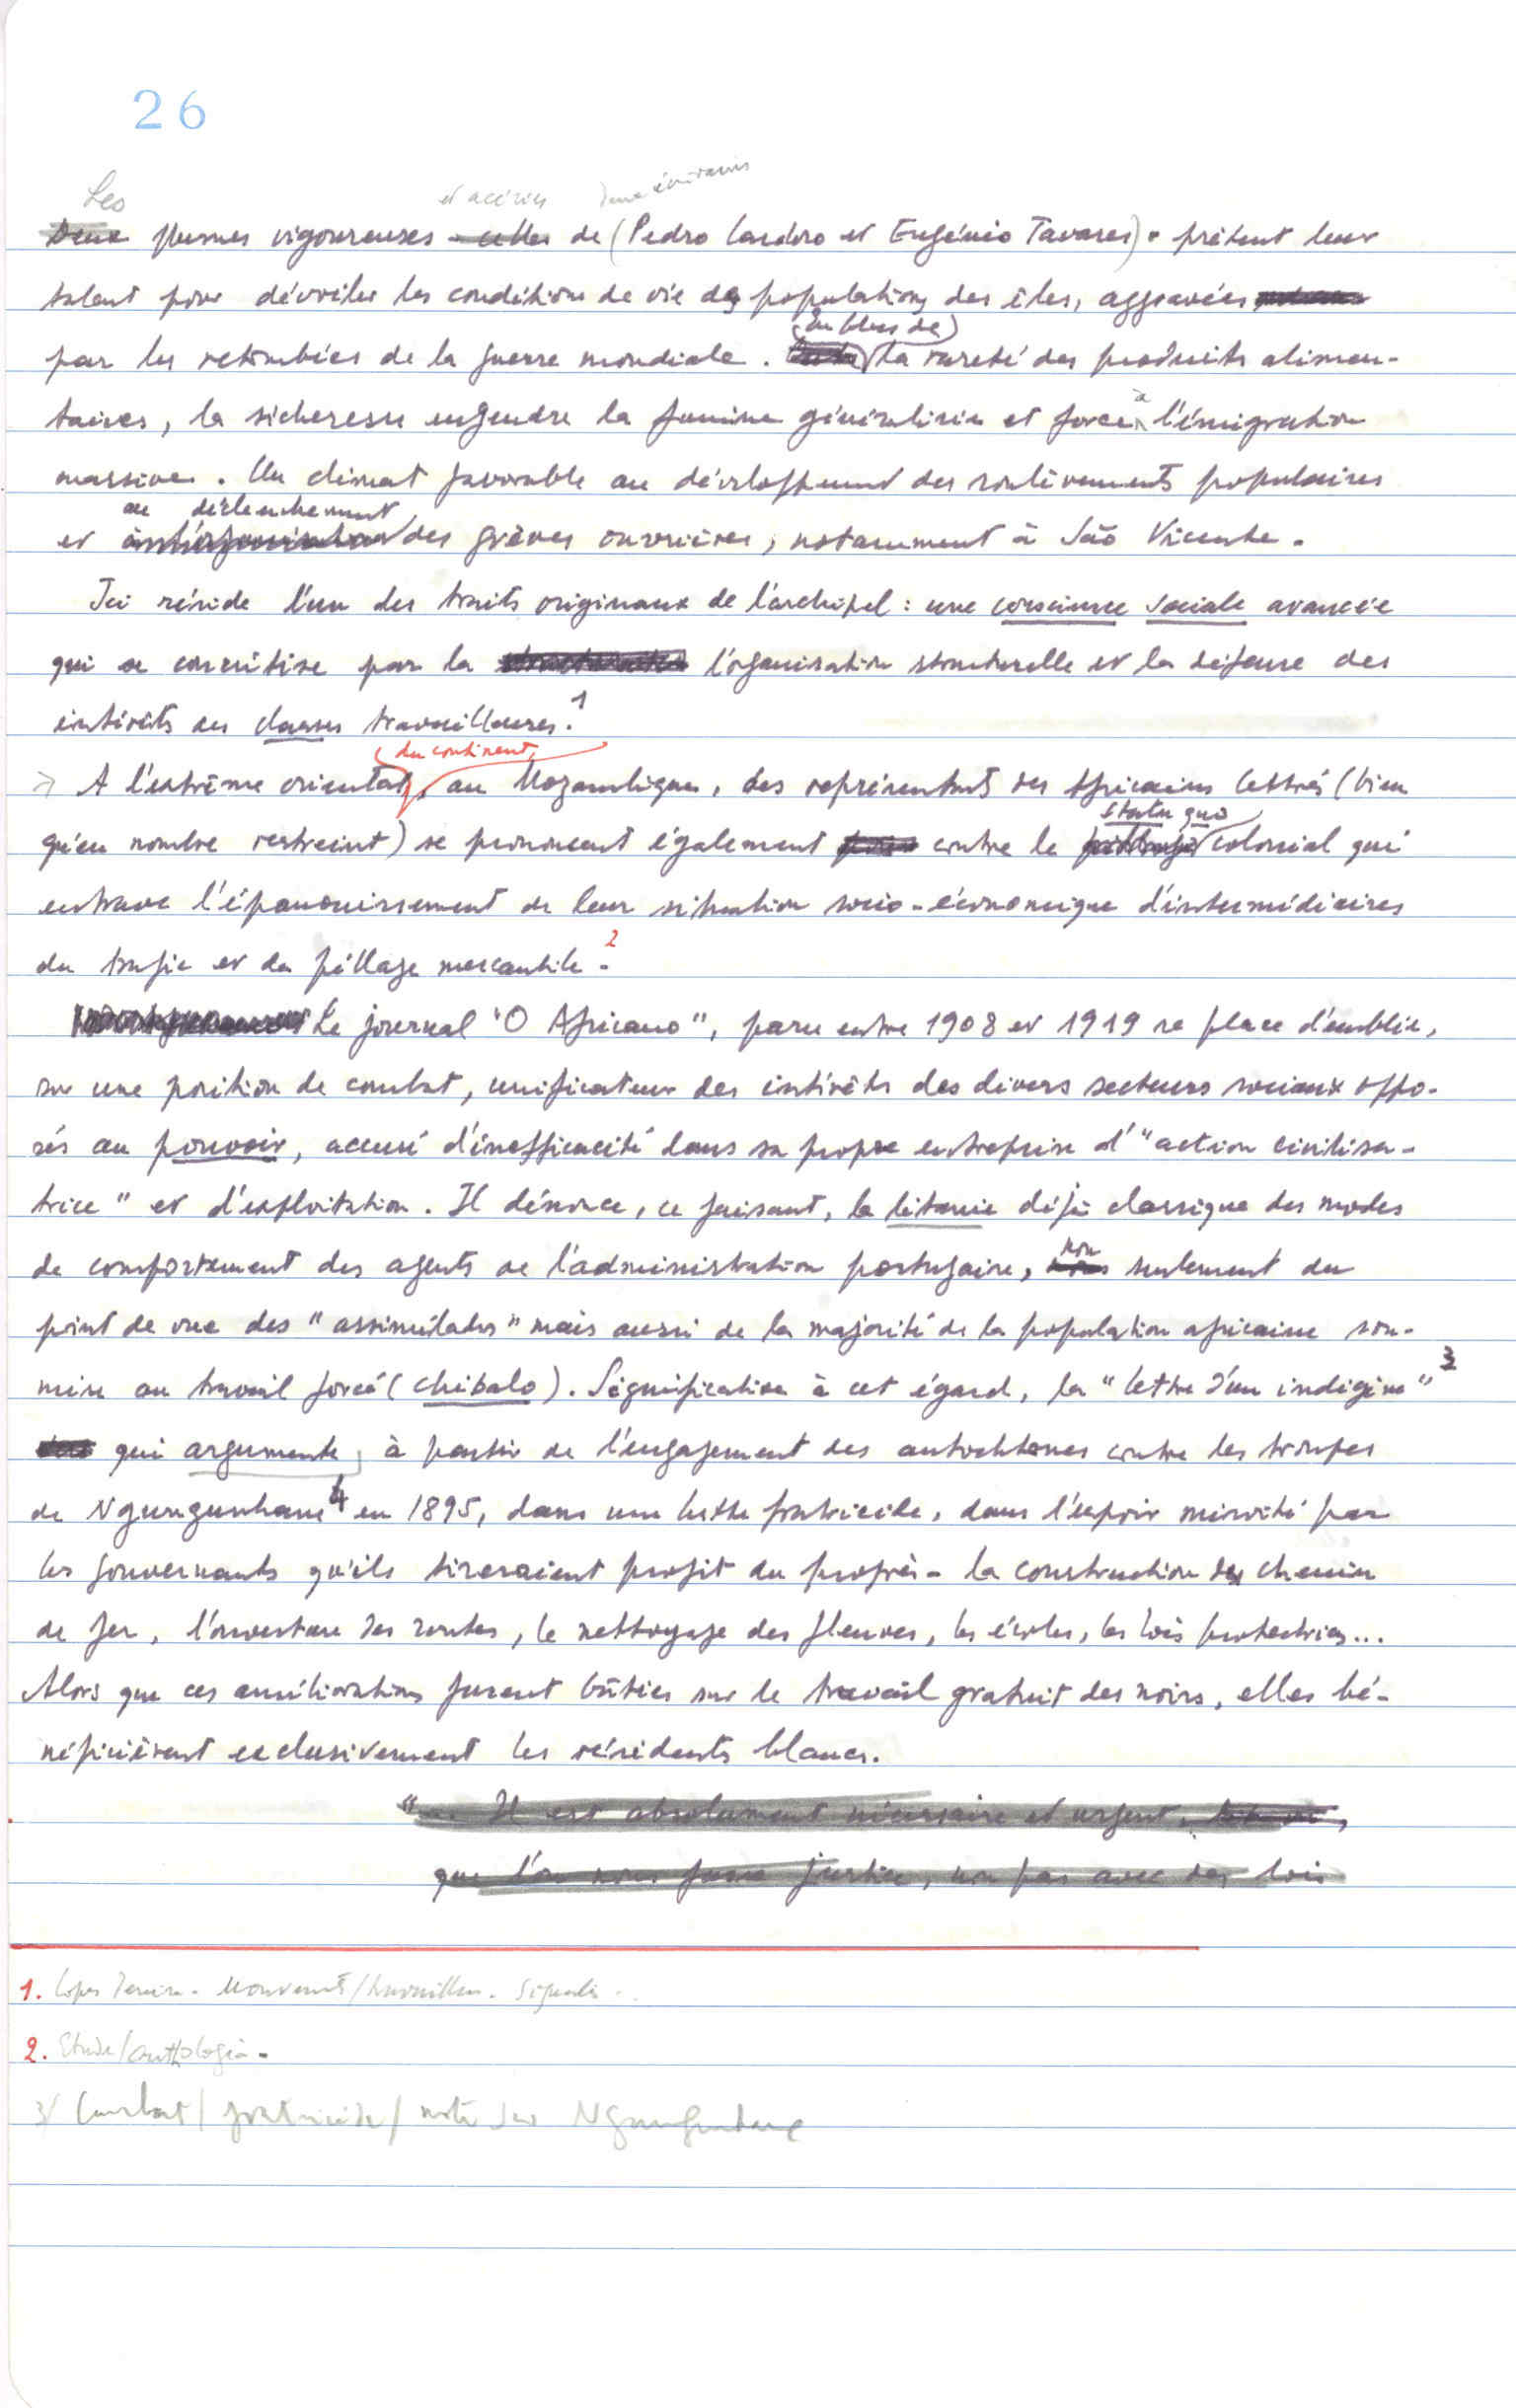 26
Les et acérées deux écrivains
Deux plumes vigoureuses - celles de (Pedro Cardoso et Eugénio Tavares) - prêtent leur
talent pour dévoiler les conditions de vie des populations des îles, aggravées
par les retombées de la guerre mondiale. (En plus de) la rareté des produits alimen-
taires, la sécheresse engendre la famine généralisée et force à l'émigration
massive. Un climat favorable au développement des soulèvements populaires
au déclenchement
et des grèves ouvrières, notamment à São Vicente.
Ici réside l'un des traits originaux de l'archipel : une conscience sociale avancée
qui se concrétise par la l'organisation structurelle et la défense des
intérêts des classes travailleuses.1
du continent,
→ A l'extrême oriental, au Mozambique, des représentants des Africains lettrés (bien
statu quo
qu'en nombre restreint) se prononcent également contre le colonial qui
entrave l'épanouissement de leur situation socio-économique d'intermédiaires
du trafic et du pillage mercantile.2
Le journal "O Africano", paru entre 1908 et 1919 se place d'emblée,
sur une position de combat, unificateur des intérêts des divers secteurs sociaux oppo-
sés au pouvoir, accusé d'inefficacité dans sa propre entreprise d'"action civilisa-
trice" et d'exploitation. Il dénonce, ce faisant, la litanie déjà classique des modes
de comportement des agents de l'administration portugaise, non seulement du
point de vue des "assimilados" mais aussi de la majorité de la population africaine sou-
mise au travail forcé (chibalo). Significative à cet égard, la "lettre d'un indigène"3
qui argumente, à partir de l'engagement des autochtones contre les troupes
de Ngungunhane4 en 1895, dans une lutte fratricide, dans l'espoir miroité par
les gouvernants qu'ils tireraient profit du progrès - la construction des chemin
de fer, l'ouverture des routes, le nettoyage des fleuves, les écoles, les lois protectrices...
Alors que ces améliorations furent bâties sur le travail gratuit des noirs, elles bé-
néficièrent exclusivement les résidents blancs.
"... Il est absolument nécessaire et urgent,
que l'on nous fasse justice, non pas avec des lois
1. Lopes Mouvements/travailleurs.
2. Etude/anthologie.
3/ Combat/fratricide/note sur Ngungunhane